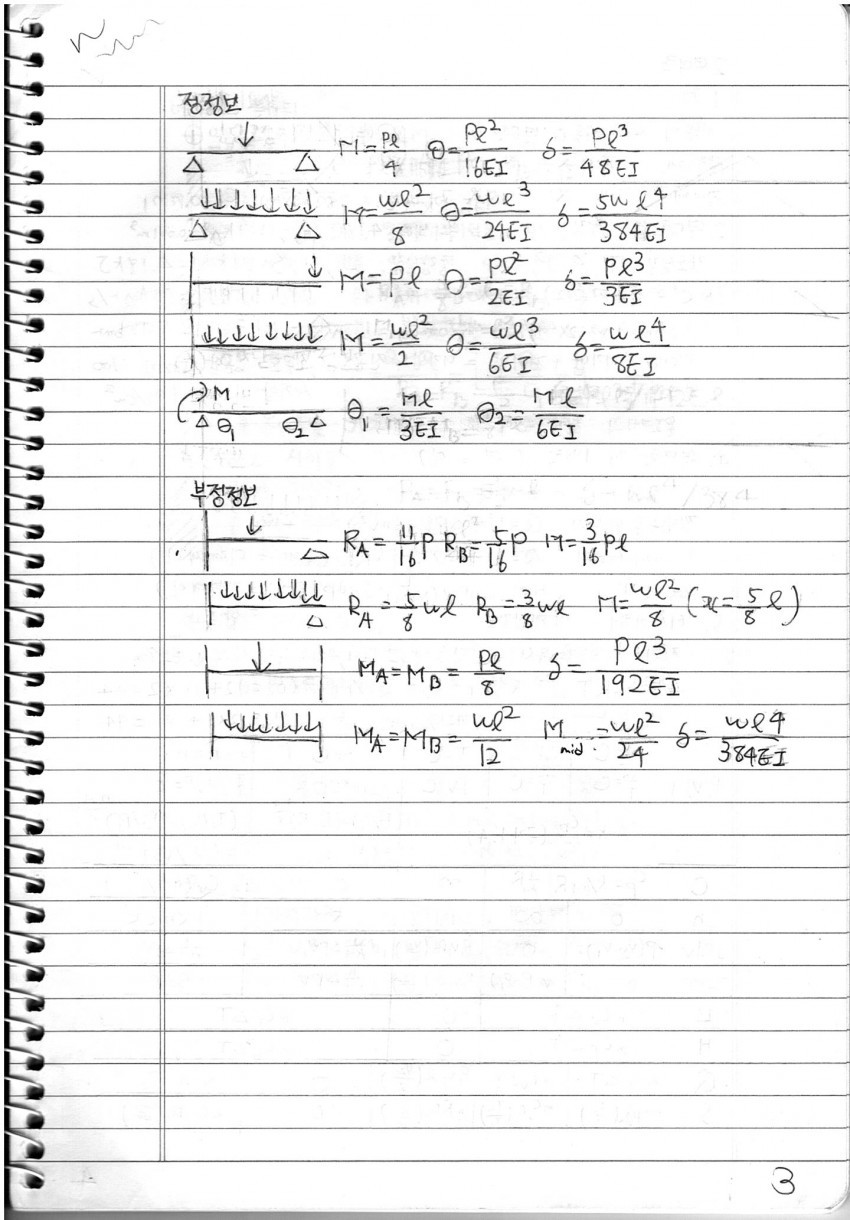 정정보
M=Pℓ/4 θ=Pℓ²/16EI δ=Pℓ³/48EI
M=wℓ²/8 θ=wℓ³/24EI δ=5wℓ4/384EI
M=Pℓ θ=Pℓ²/2EI δ=Pℓ3/3EI
M=wℓ²/2 θ=wℓ3/6EI δ=wℓ4/8EI
M θ₁ θ₂ θ₁=Mℓ/3EI θ₂=Mℓ/6EI
부정정보
R_A=11/16P R_B=5/16P M=3/16Pℓ
R_A=5/8wℓ R_B=3/8wℓ M=wℓ²/8(x=5/8ℓ)
M_A=M_B=Pℓ/8 δ=Pℓ3/192EI
M_A=M_B=wℓ²/12 M_mid=wℓ²/24 δ=wℓ4/384EI
3